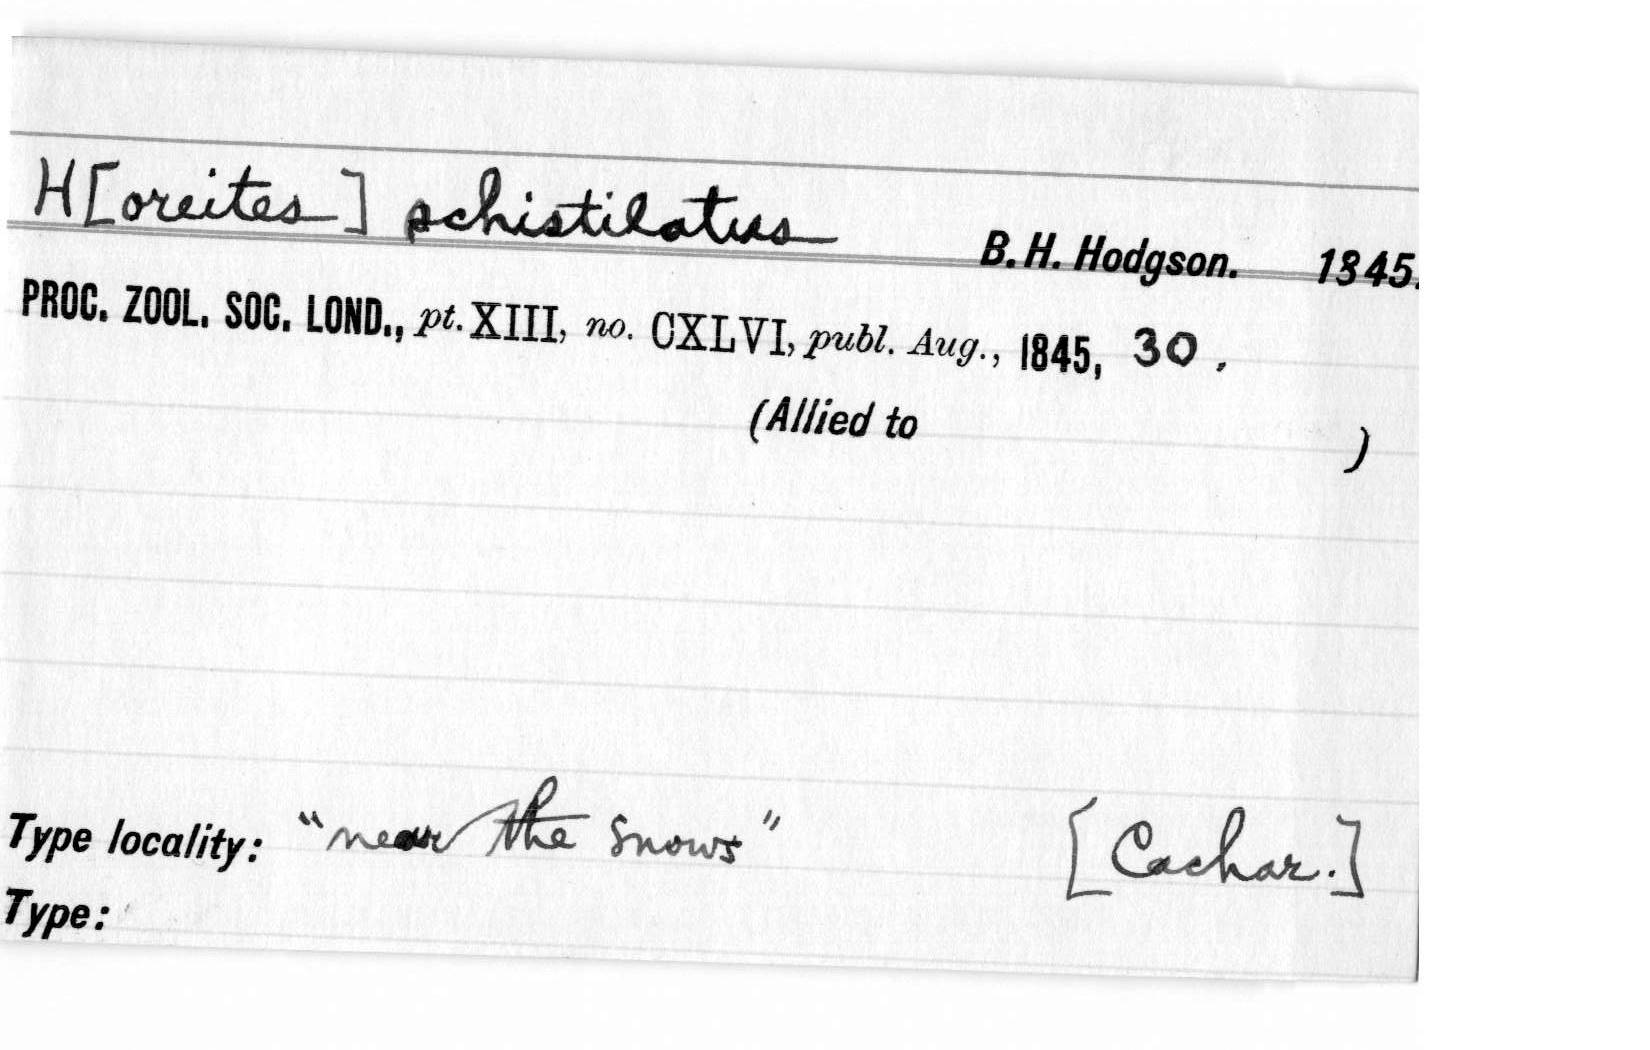 H[oreites] schistilatus B. H. Hodgson. 1845.
PROC. ZOOL. SOC. LOND., pt. XIII, no. CXLVI, publ. Aug., 1845, 30.
(Allied to )
Type locality: "near the snows" [Cachar.]
Type: